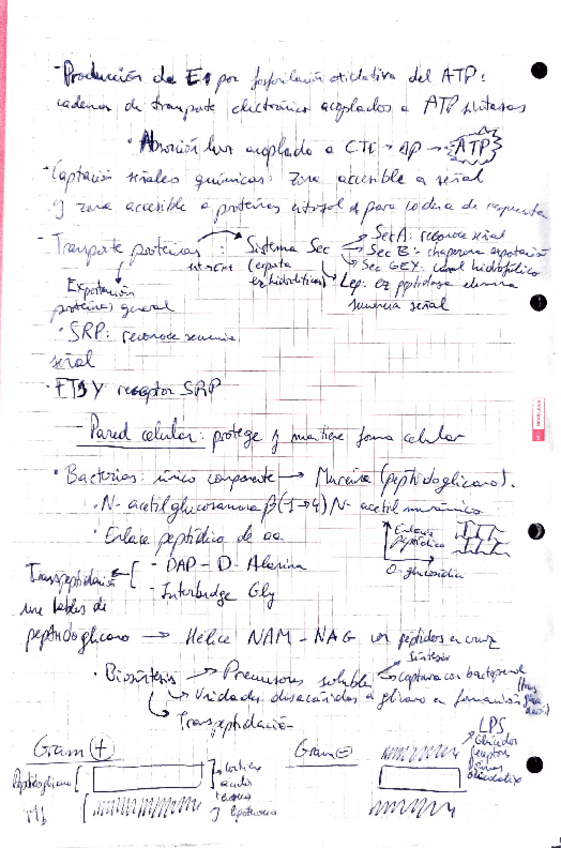 - Producción de E por fosforilación oxidativa del ATP:
cadenas de transporte electrónico acoplados a ATP sintasas
· Absorción luz acoplado a CTE → → ATP
- Captación señales químicas: zona accesible a señal
y zona accesible a proteínas citosol para cadena de respuesta
- Transporte proteínas : → Sistema Sec
(exporta
ez hidrolíticas)
→ Sec A: reconoce señal
→ Sec B: chaperona exportación
→ Sec GEY: canal hidrofílico
→ Lep: ez peptidasa elimina
secuencia señal
Exportación
proteínas general
· SRP: reconoce secuencia
señal
· FTSY receptor SRP
- Pared celular: protege y mantiene forma celular
· Bacterias: único componente → Mureína (peptidoglicano).
· N-acetilglucosamina β(1→4) N-acetil murámico
· Enlace peptídico de aa
Enlace
peptídico
O-glucosídico
Transpeptidación
une tablas de
peptidoglicano → Hélice NAM-NAG con péptidos en cruz
- DAP-D-Alanina
- Interbridge Gly
· Biosíntesis → Precursores solubles
→ síntesis
→ captura con bactoprenol
→ Unidades disacáridos a glicano en formación
→ Transpeptidación
Gram +
Gram -
LPS
Peptidoglicano
ácido
MP